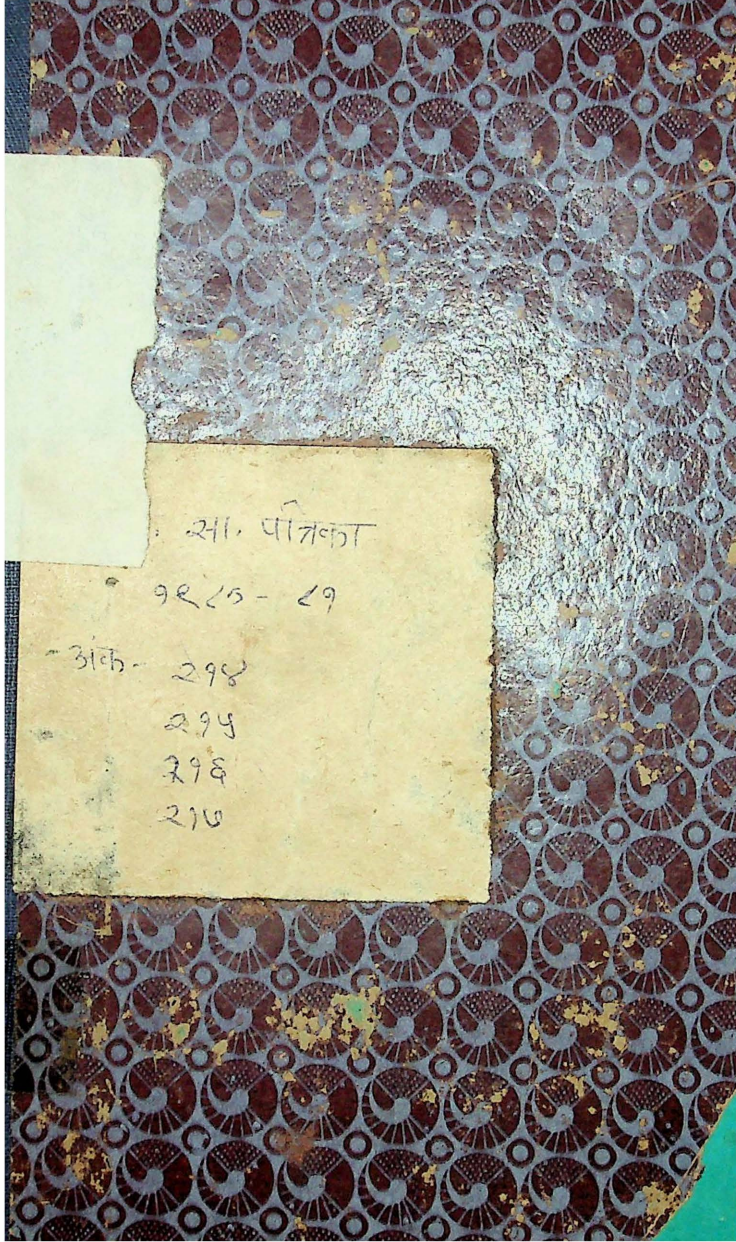 . सा. पत्रिका
१९८०-८१
-अंक- २१४
२१५
२१६
२१७